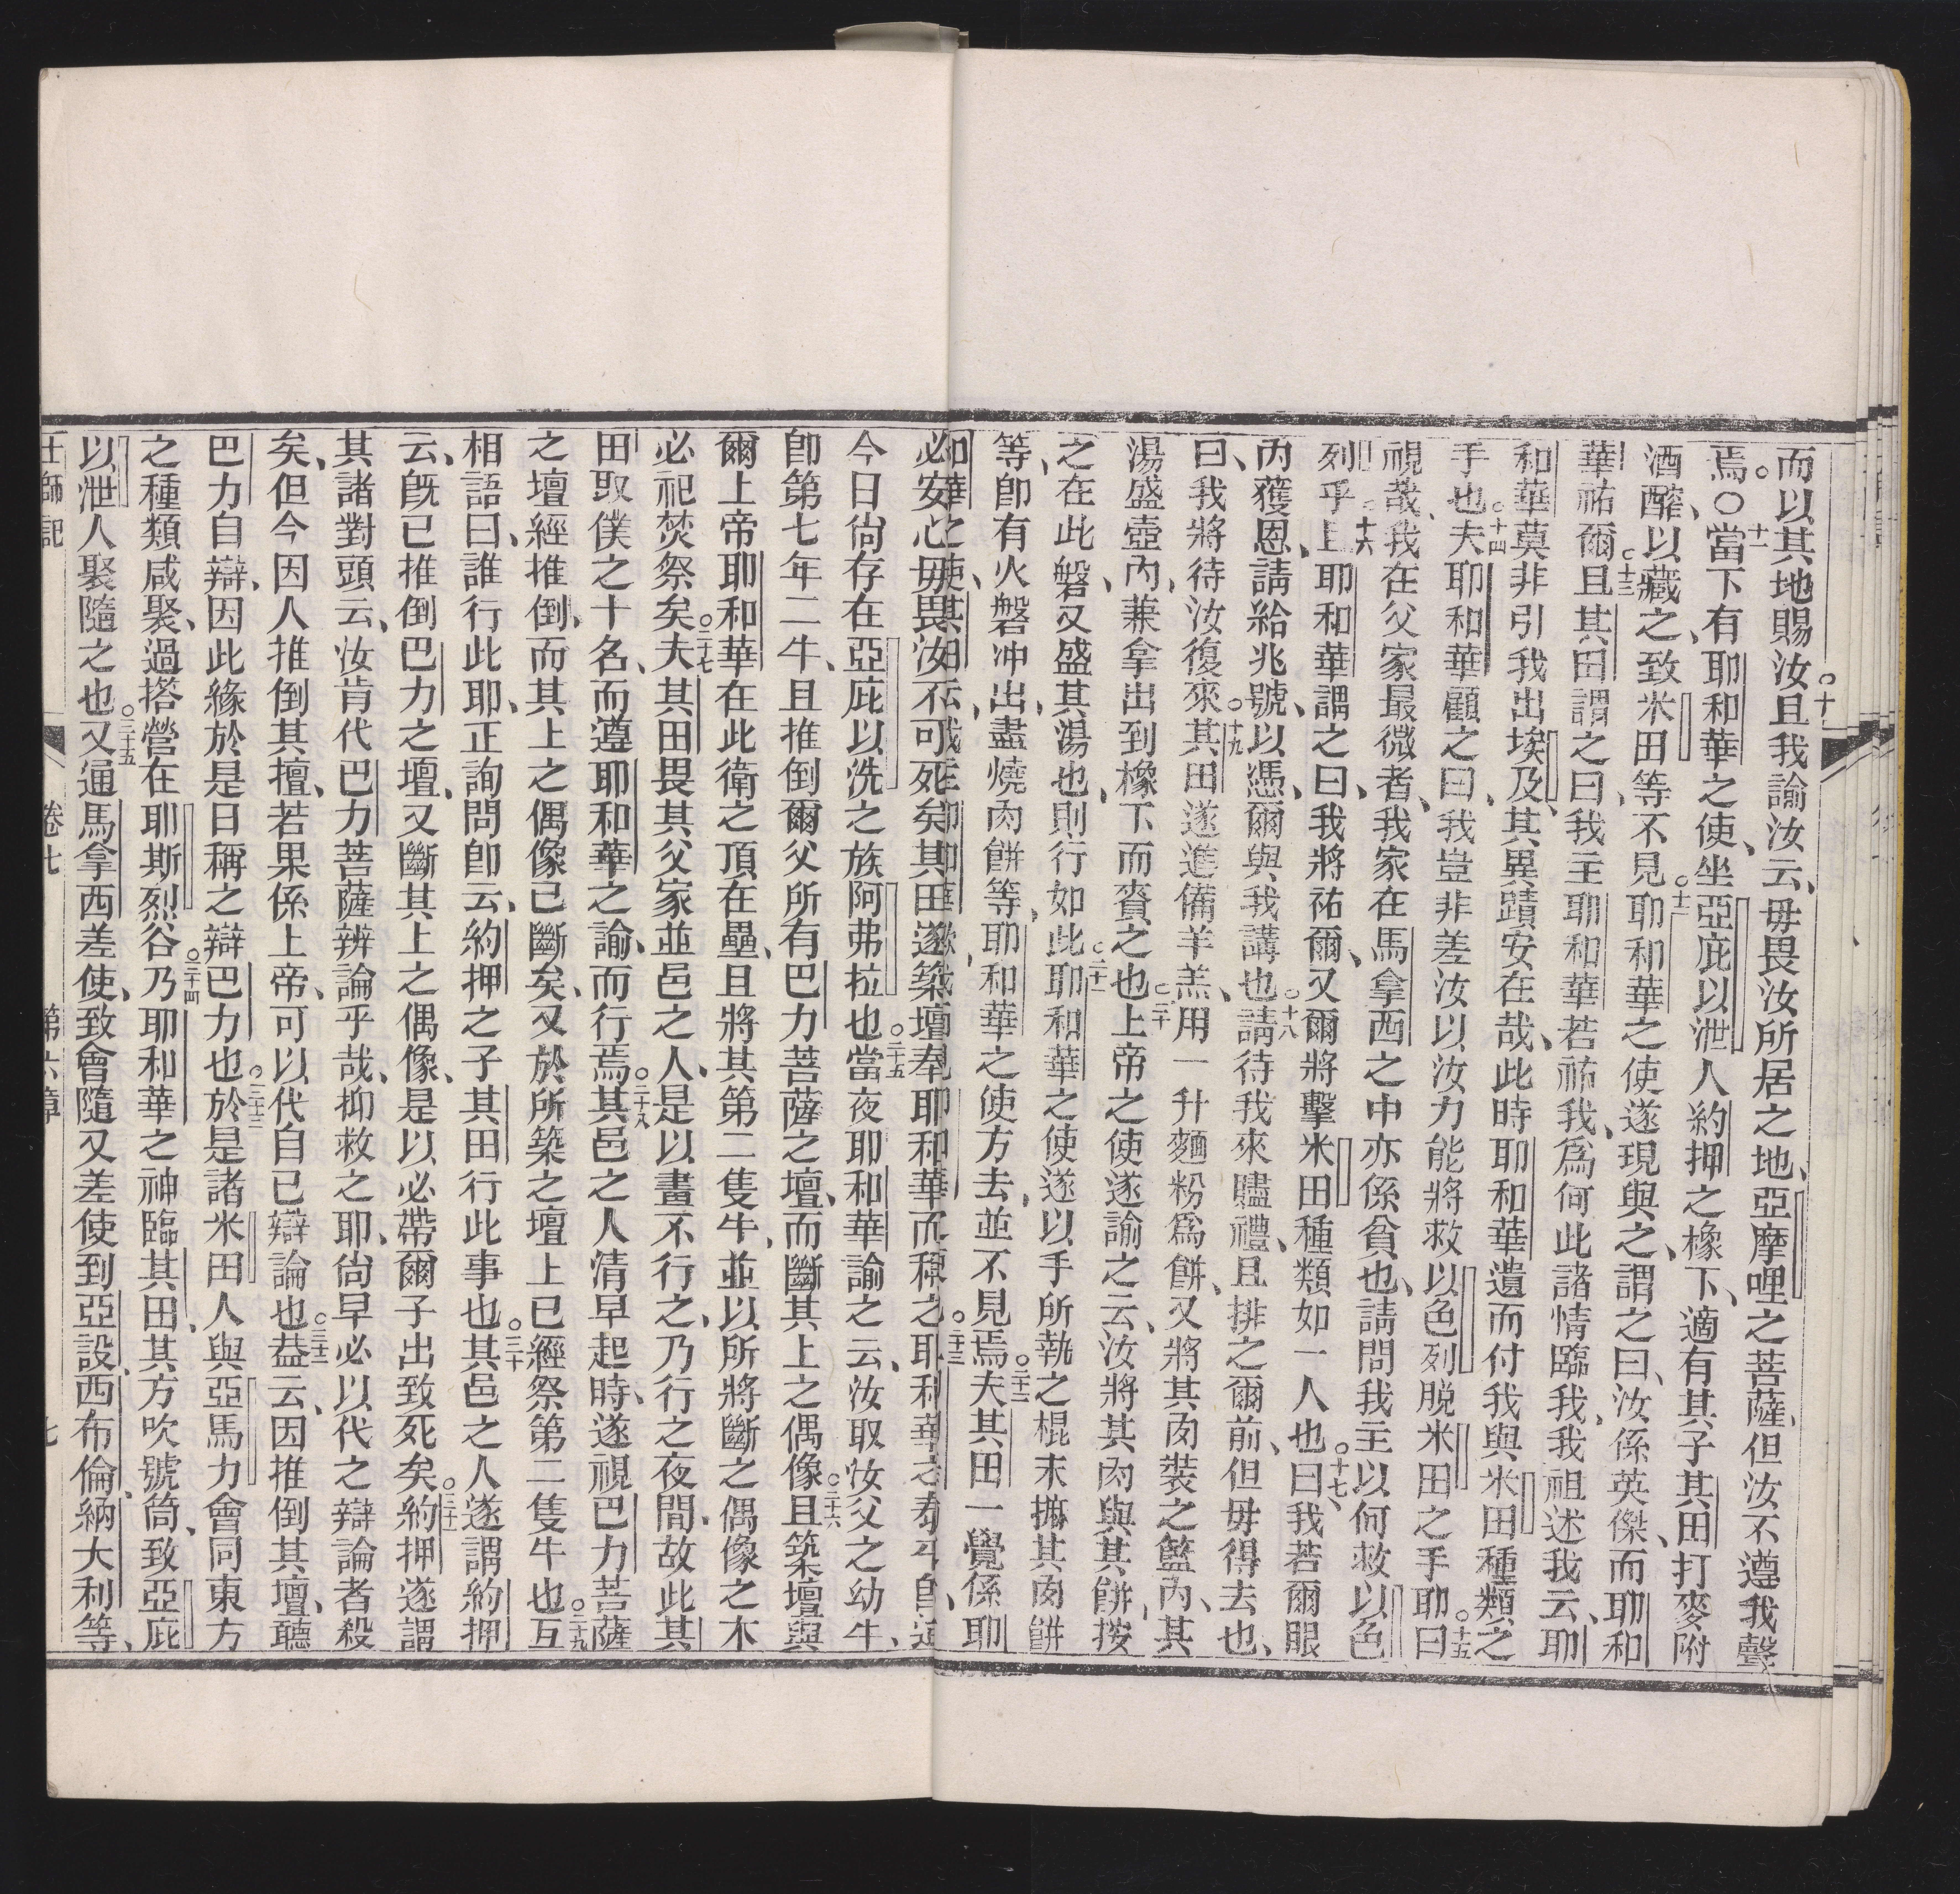 而以其地賜汝○十且我諭汝云、毋畏汝所居之地、亞摩哩之菩薩、但汝不遵我聲
焉。○十一當下有耶和華之使、坐亞庇以泄人約押之橡下、適有其子其田打麥附
酒醡、以藏之、致米田等不見○十二耶和華之使遂現與之、謂之曰、汝係英傑、而耶和
華祐爾○十三且其田謂之曰、我主耶和華若祐我、爲何此諸情臨我、我祖述我云、耶
和華莫非引我出埃及、其異蹟安在哉、此時耶和華遺而付我與米田種類之
手也○十四夫耶和華顧之曰、我豈非差汝以汝力能將救以色列脫米田之手耶○十五曰
視哉、我在父家最微者、我家在馬拿西之中亦係貧也、請問我主以何救以色
列乎○十六且耶和華謂之曰、我將祐爾、又爾將擊米田種類如一人也○十七曰、我若爾眼
內獲恩、請給兆號、以憑爾與我講也○十八請待我來贐禮、且排之爾前、但毋得去也、
曰、我將待汝復來○十九其田遂進備羊羔、用一升麵粉爲餅、又將其肉裝之籃內、其
湯盛壺內、兼拿出到橡下而賫之也○二十上帝之使遂諭之云、汝將其肉與其餅、按
之在此磐、又盛其湯也、則行如此○二十一耶和華之使遂以手所執之棍末撫其肉餅
等、卽有火磐冲出、盡燒肉餅等、耶和華之使方去、並不見焉○二十二夫其田一覺係耶
和華之使、其田云
必安心毋畏、汝不可死矣其田遂築壇奉耶和華而稱之耶和華
今日尙存在亞庇以洗之族阿弗拉也○二十五當夜耶和華諭之云、汝取汝父之幼牛、
卽第七年二牛、且推倒爾父所有巴力菩薩之壇、而斷其上之偶像○二十六且築壇與
爾上帝耶和華在此衛之頂在壘、且將其第二隻牛、並以所將斷之偶像之木
必祀焚祭矣○二十七夫其田畏其父家並邑之人、是以晝不行之、乃行之夜間、故此其
田取僕之十名、而遵耶和華之諭、而行焉○二十八其邑之人淸早起時、遂視巴力菩薩
之壇經推倒、而其上之偶像已斷矣、又於所築之壇上已經祭第二隻牛也○二十九互
相語曰、誰行此耶、正詢問卽云、約押之子其田行此事也○三十其邑之人遂謂約押
云、旣已推倒巴力之壇、又斷其上之偶像、是以必帶爾子出致死矣○三十一約押遂謂
其諸對頭云、汝肯代巴力菩薩辨論乎哉、抑救之耶、尙早必以代之辯論者殺
矣、但今因人推倒其擅、若果係上帝、可以代自己辯論也○三十二葢云、因推倒其壇、聽
巴力自辯、因此緣於是日稱之辯巴力也○三十三於是諸米田人與亞馬力會同東方
之種類咸聚、過搭營在耶斯烈谷○三十四乃耶和華之神臨其田、其方吹號筒、致亞庇
以泄人聚隨之也○三十五又通馬拿西差使、致會隨又差使到亞設、西布倫、納大利等、
士師記 卷七 第六章 七